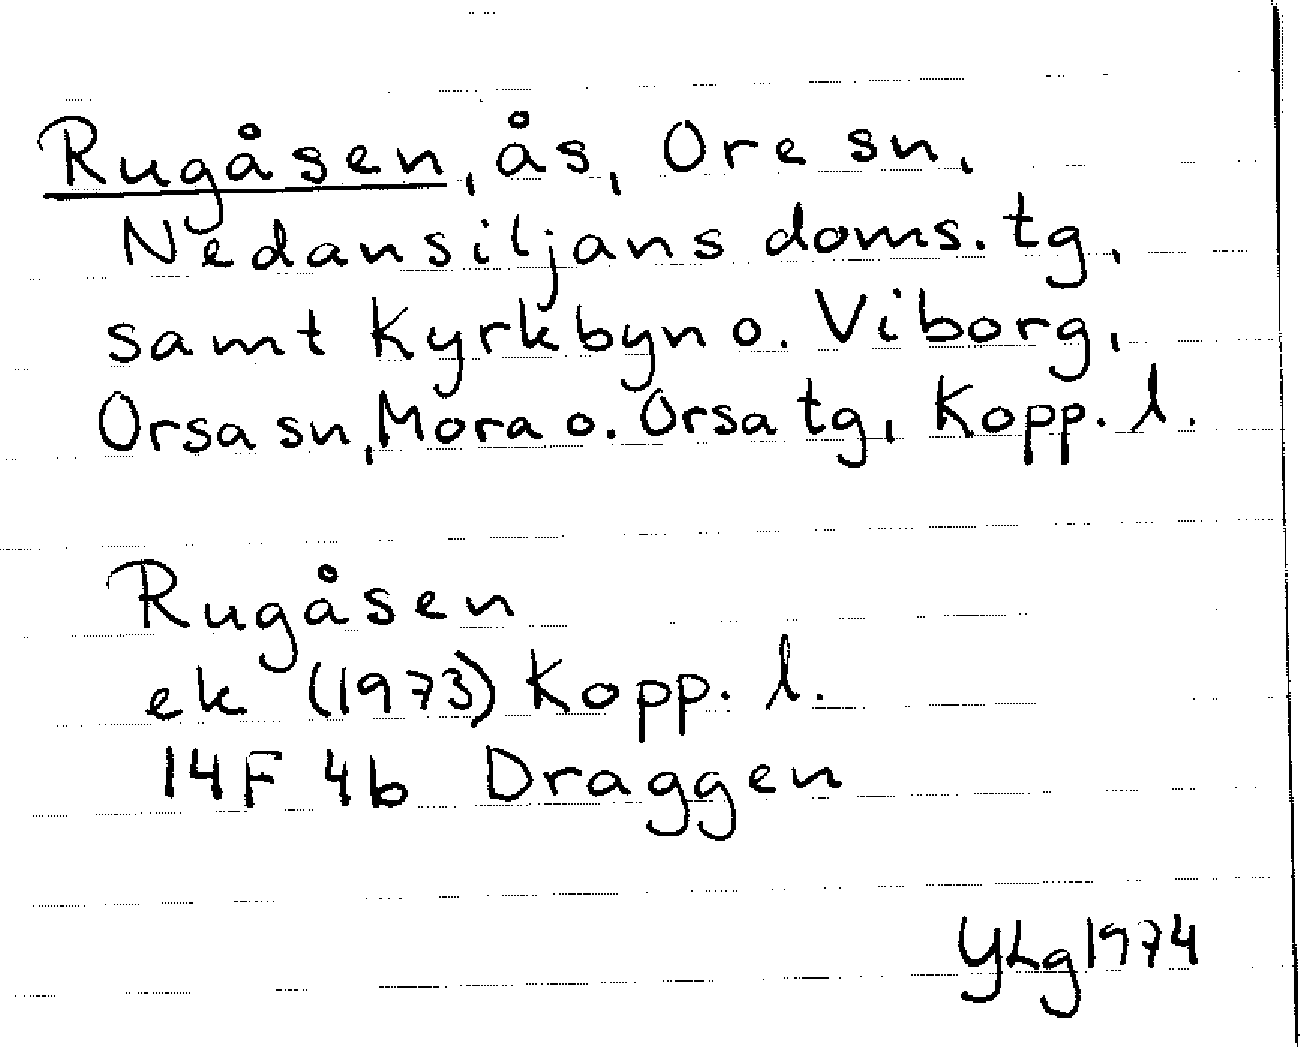 Rugåsen, ås, Ore sn,
Nedansiljans doms. tg,
samt Kyrkbyn o. Viborg,
Orsa sn, Mora o. Orsa tg, Kopp. l.
Rugåsen
ek (1973) Kopp. l.
14F 4b Draggen
YLg 1974